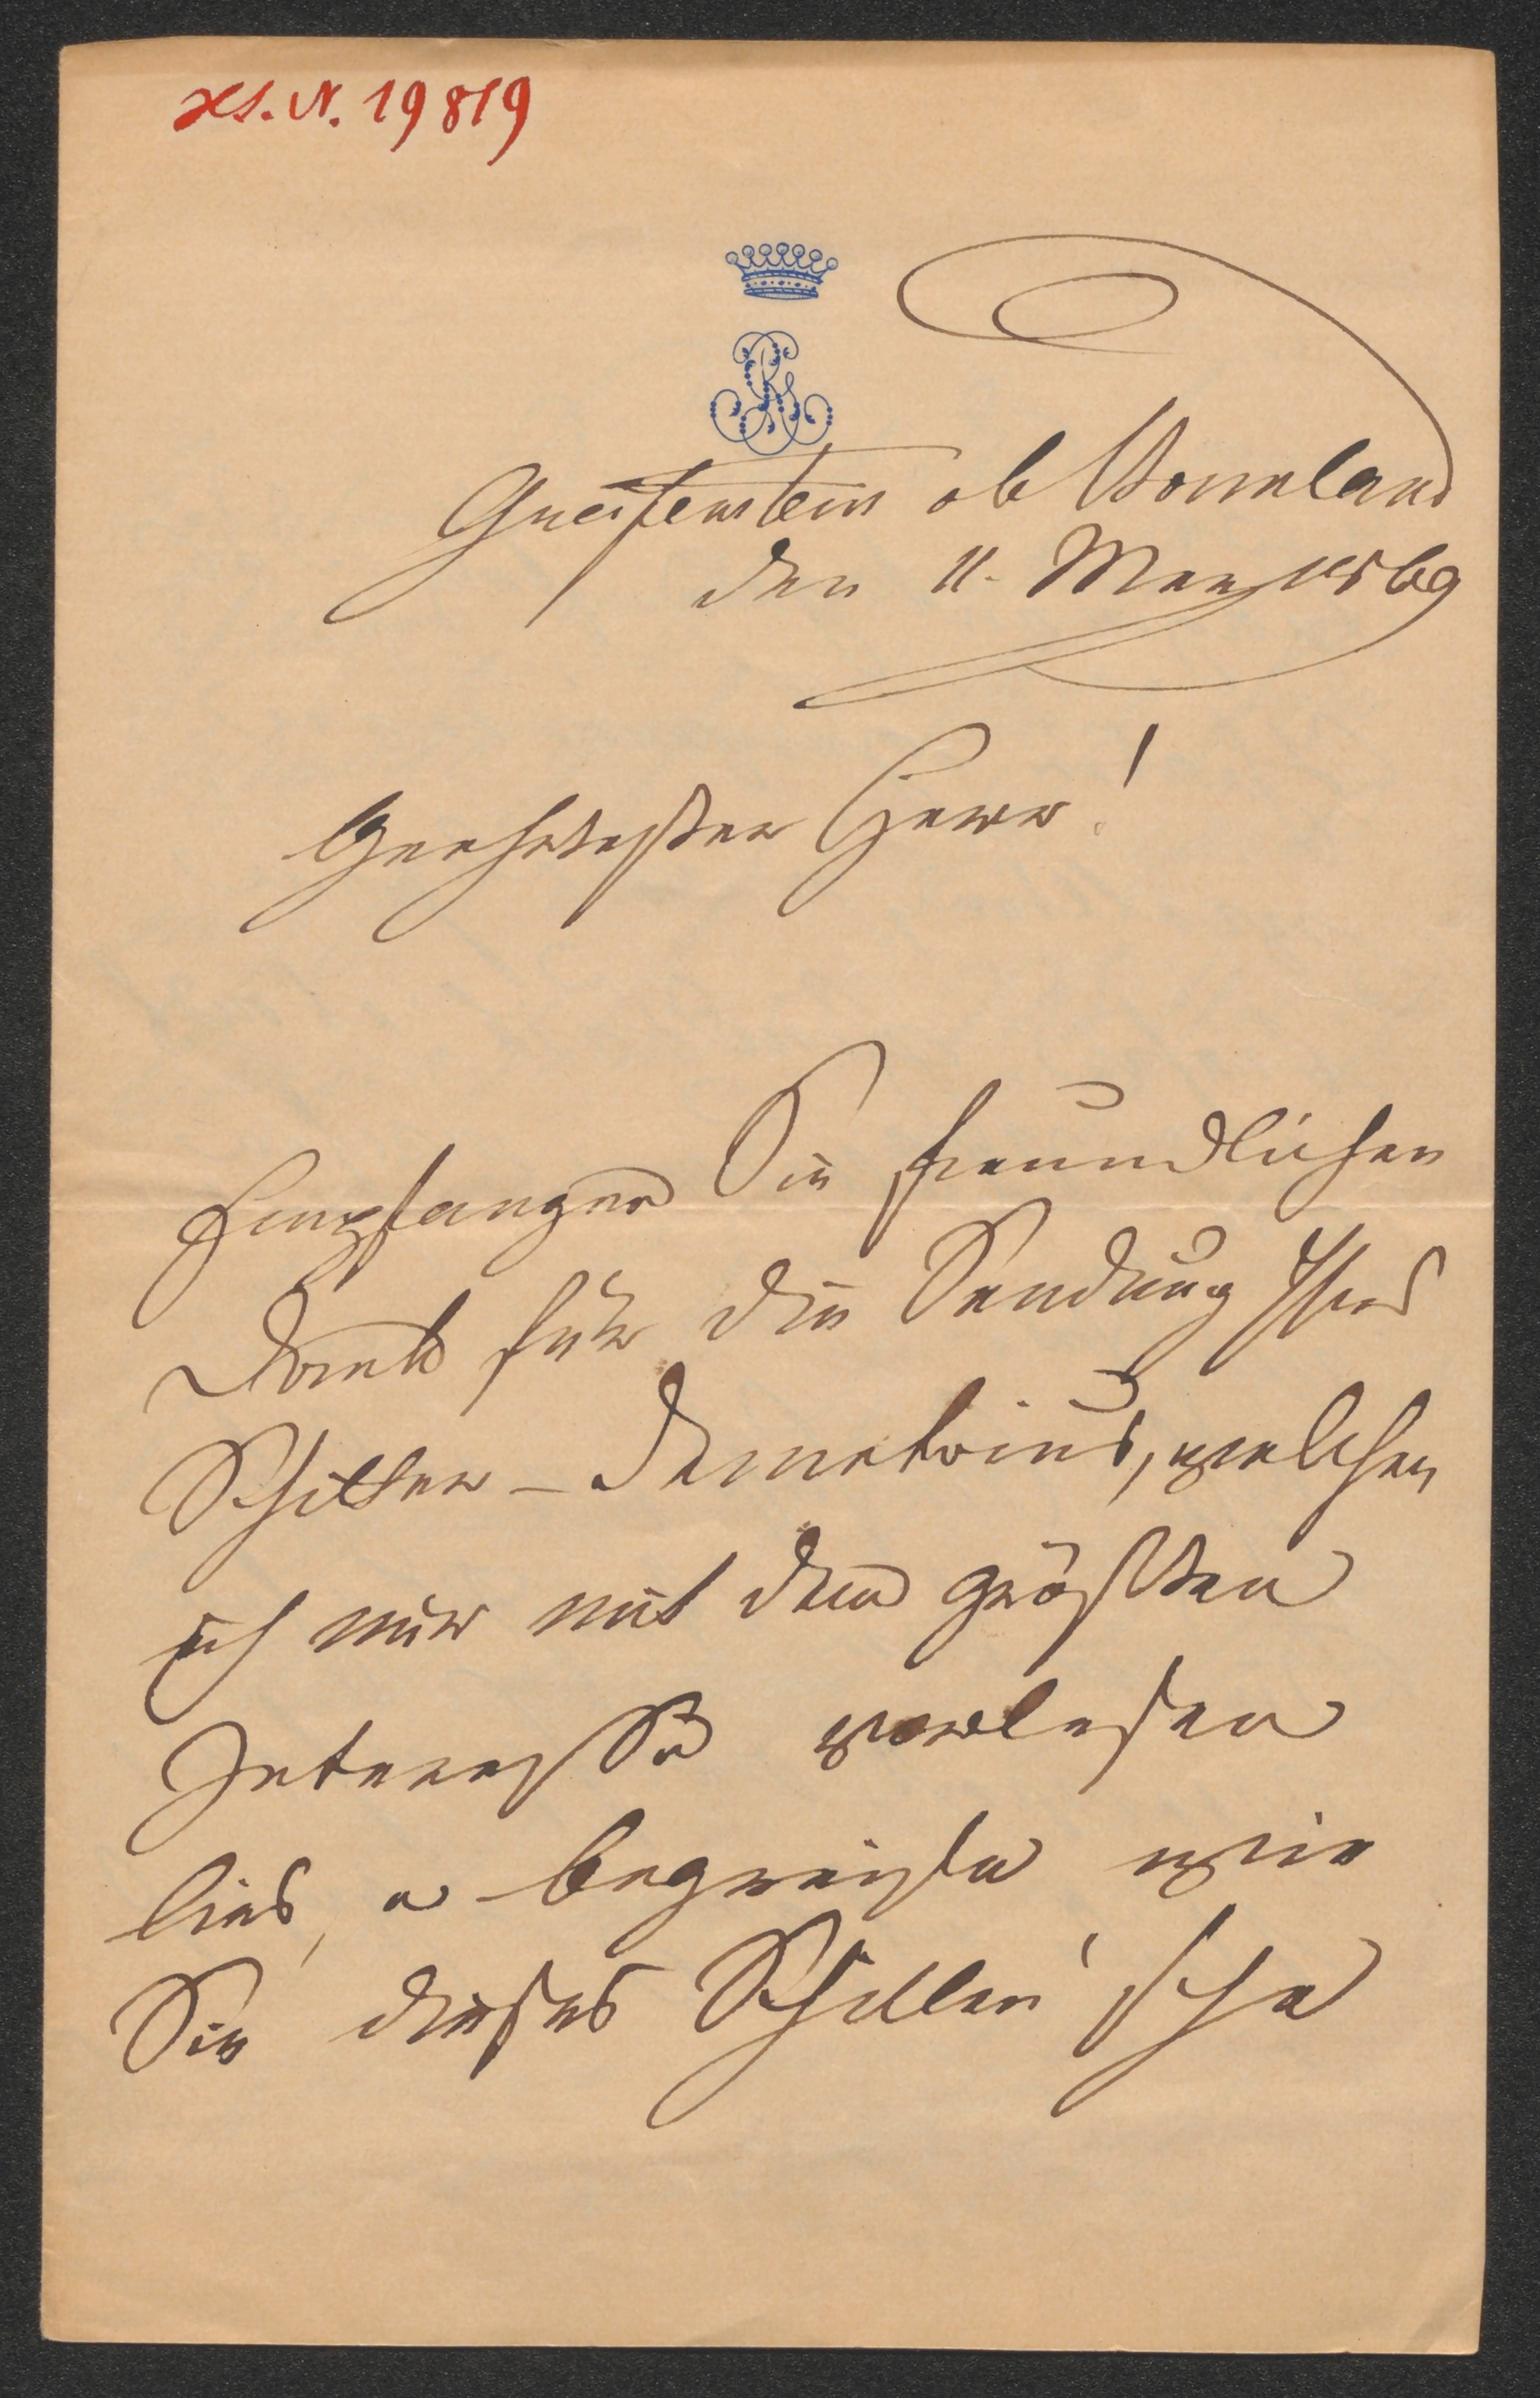 Hs. N. 19819
Greifenstein ob Bonnland
den 11. März 1869
Geehrtester Herr!
Empfangen Sie freundlichen
Dank für die Sendung Ihres
Schiller-Demetrius, welchen
ich mir mit dem größten
Interesse vorlesen
lies, u begreife wie
Sie dieses Schiller'sche